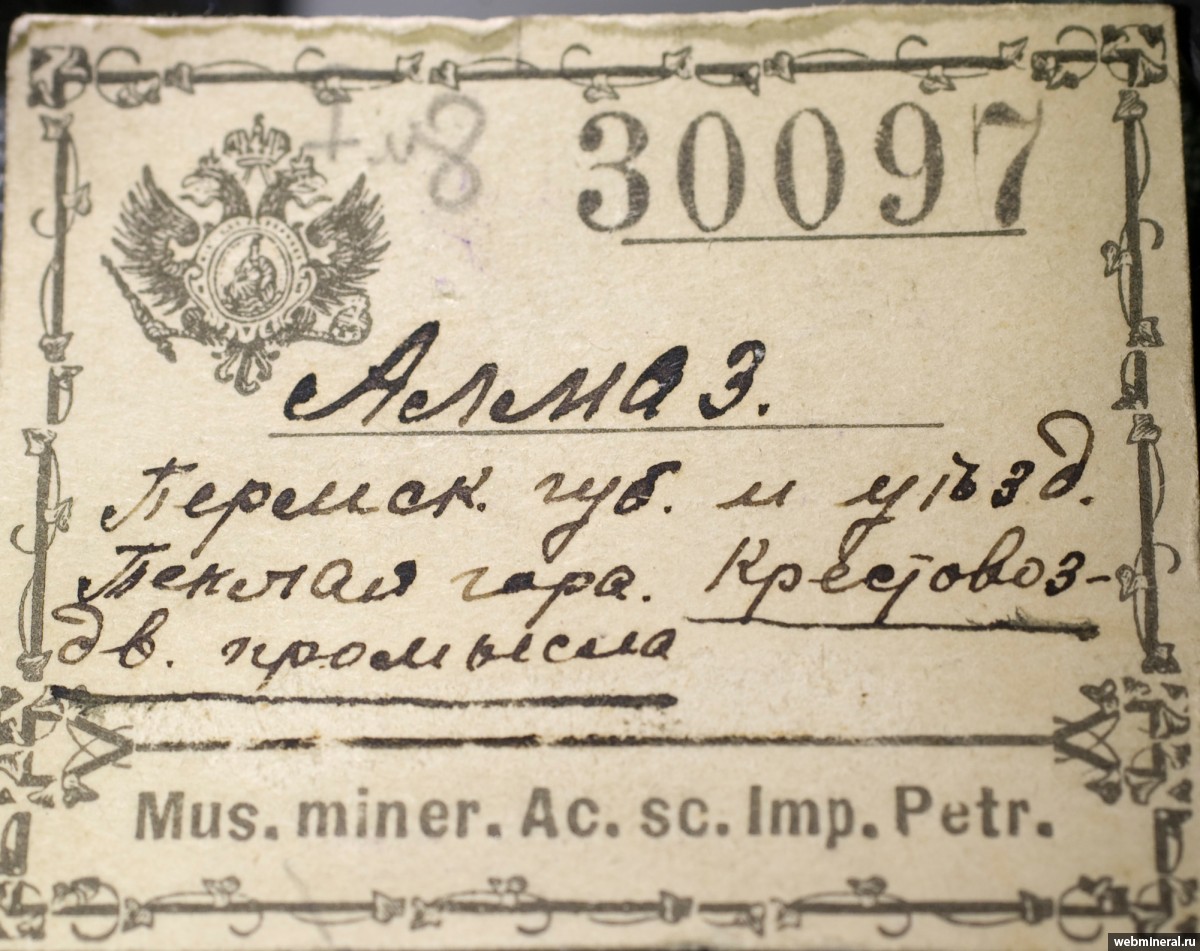 30097
Алмаз.
Пермск. губ. и уѣзд.
Теплая гора. Крестовоз-
дв. промысла
Mus. miner. Ac. sc. Imp. Petr.
webmineral.ru